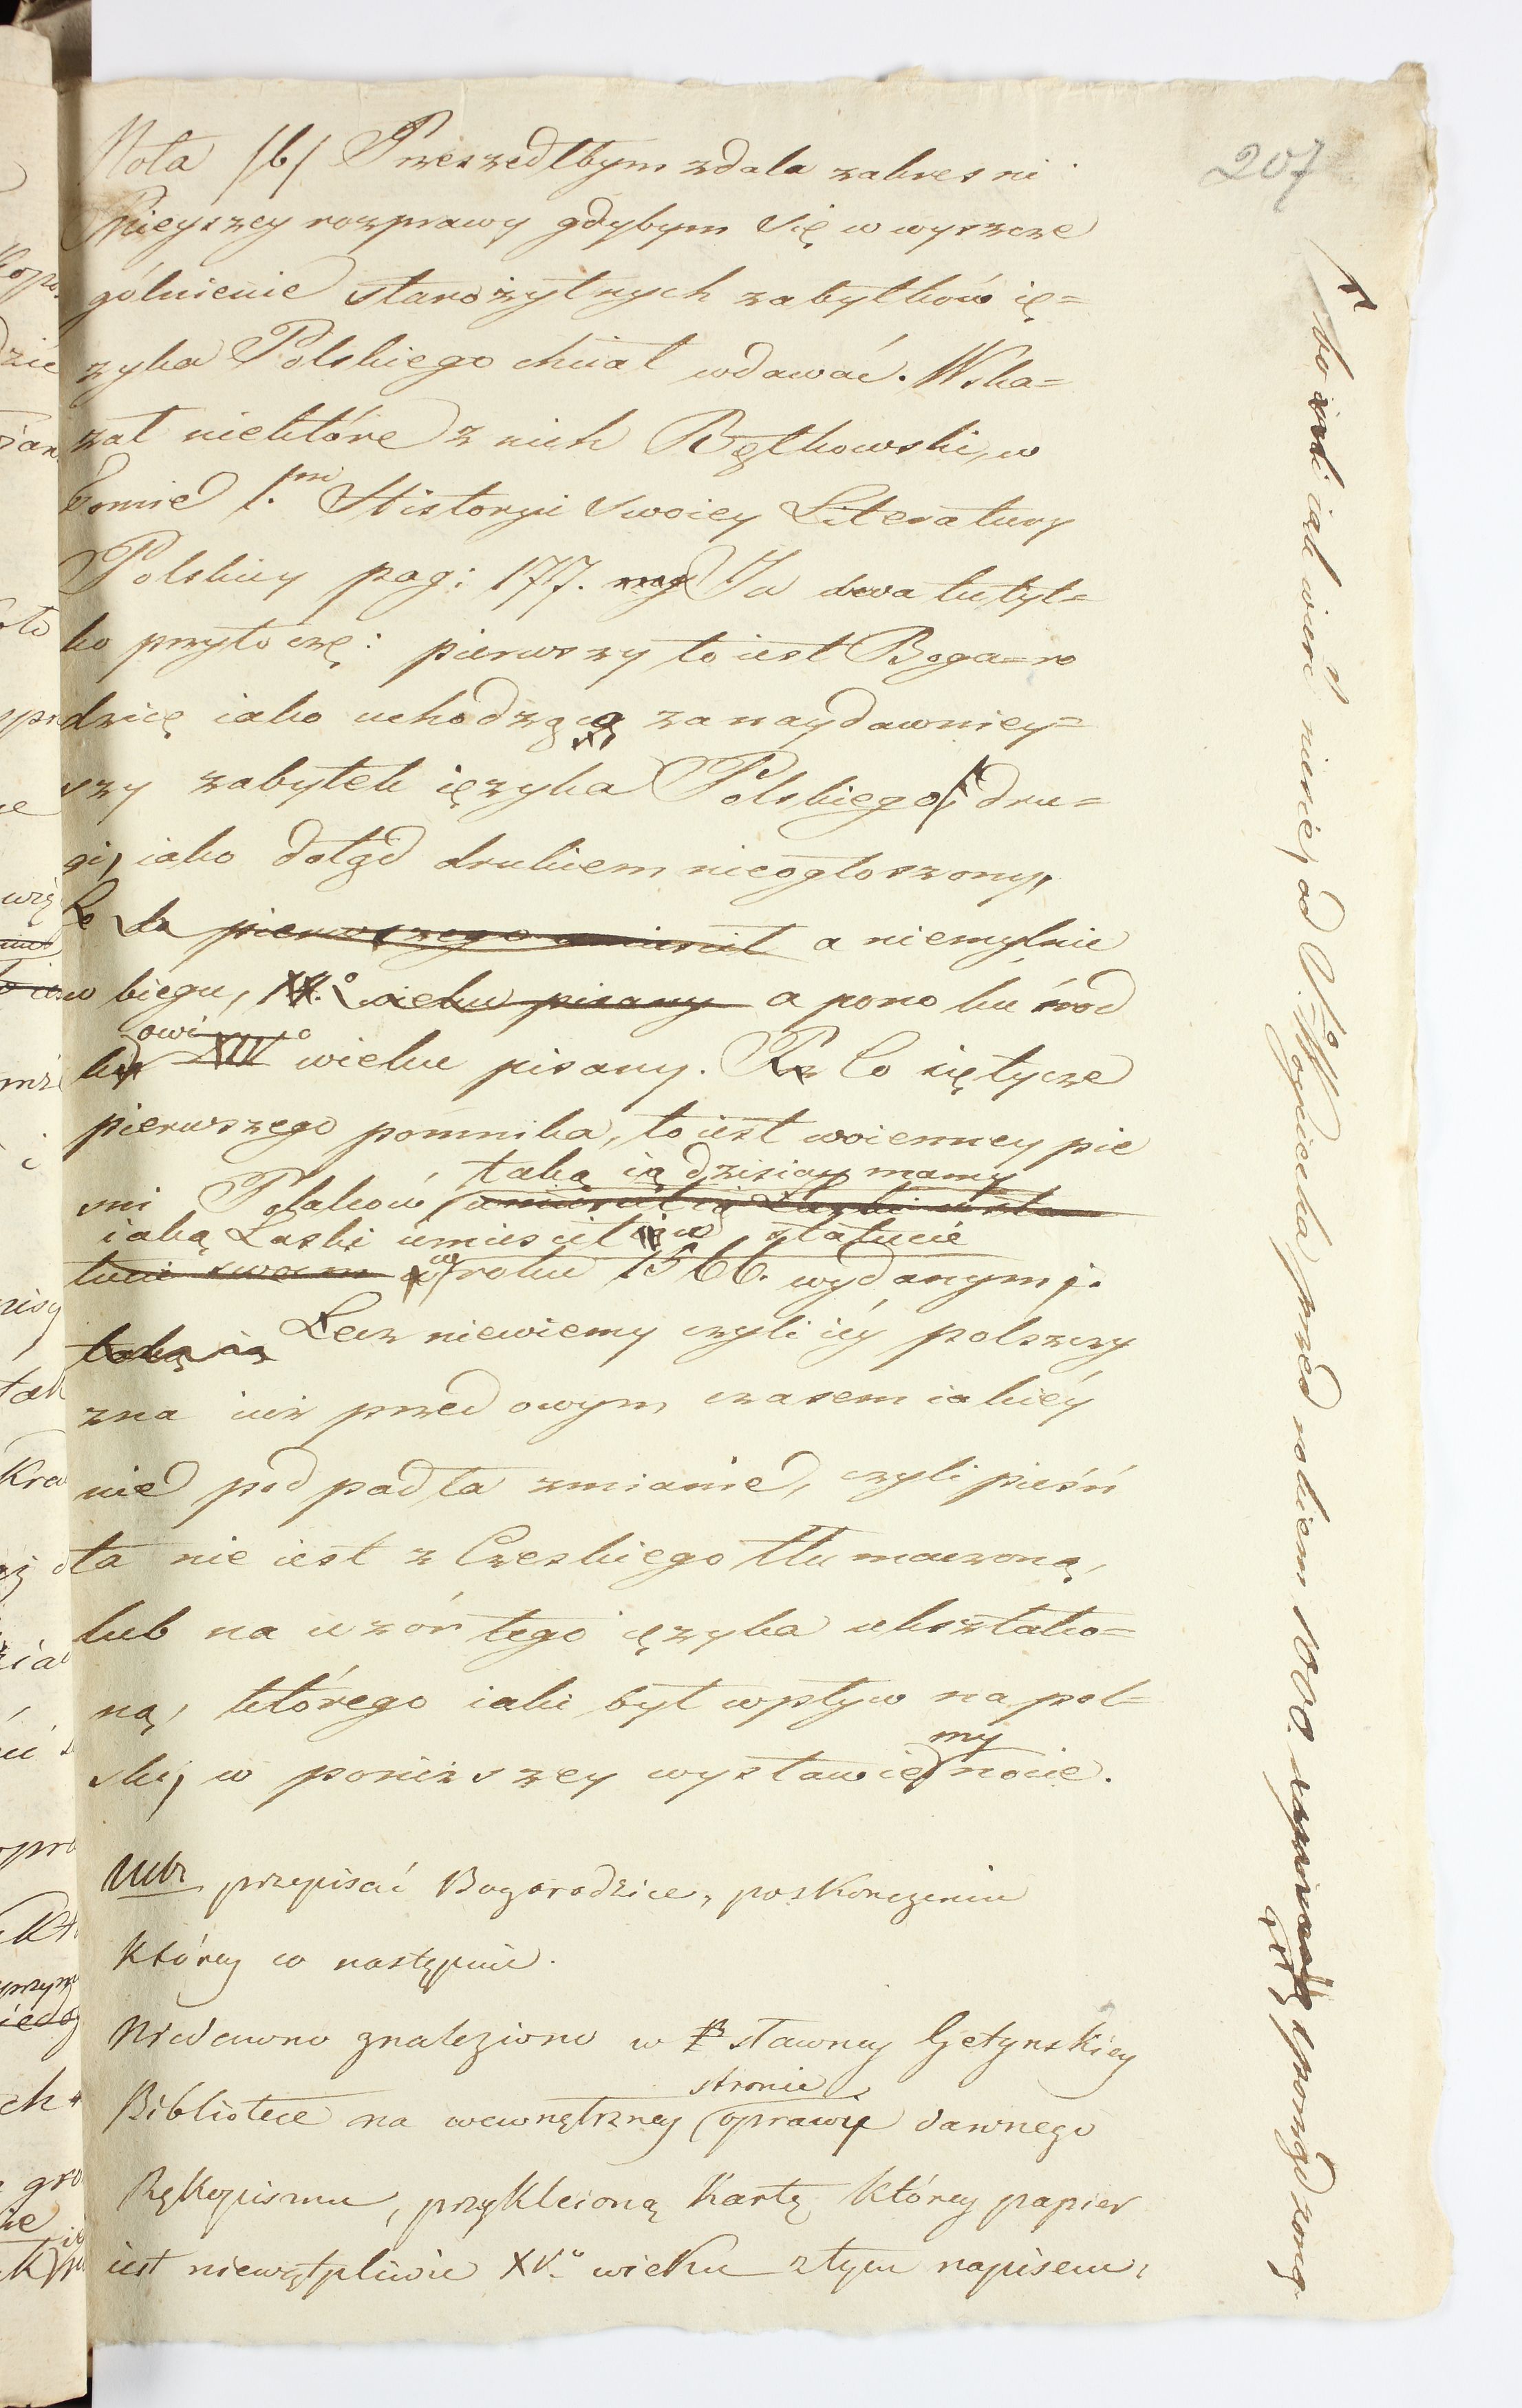 207
Nota /b/ Przeszedłbym zdala zakres ni
nieyszey rozprawy gdybym się w wyszcze
gólnienie starożytnych zabytków ię=
zyka Polskiego chciał wdawać. Wska=
zał niektóre z nich Bętkowski, w
tomie 1.m Historyi swoiey Literatury
Polskiey pag: 177. Ja dwa tu tyl=
ko przytoczę: pierwszy to iest Boga=ro
dzicę iako uchodzącą za naydawniey=
szy zabytek ięzyka Polskiego; dru=
gi, iako dotąd drukiem nieogłoszony,
pierwszego umieścił a niemylnie
w biegu, XV.o wieku pisany a pono ku środ
kowi XIVo wieku pisany. Co się tycze
pierwszego pomnika, to iest woienney pie
śni Polaków taką ią dzisiay mamy
iaką Łaski umieścił w statucie
tucie swoim w roku 1506. wydanym;
taką ią Lecz niewiemy czyli iéy polszczy
zna iuż przed owym czasem iakiéy
nie podpadła zmianie, czyli pieśń
ta nie iest z Czeskiego tłumaczoną,
lub na wzór tego ięzyka ukształco=
ną, którego iaki był wpływ na pol=
ski, w poniższey wystawiemy nocie.
Nub: przepisać Bogarodzice, po skończeniu
którey co następuie.
Niedawno znaleziono w sławney Getynskiey
Bibliotece na wewnętrzney stronie oprawie dawnego
Rękopismu, przykleioną kartę którey papier
iest niewątpliwie XV.o wieku z tym napisem,
bo iak wieść niesie, od S.o Woyciecha przed rokiem 1000. sporządzoną